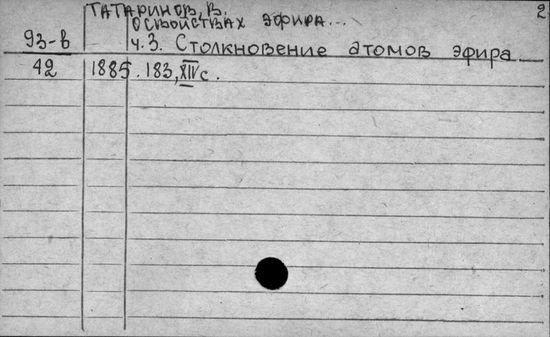 2
ТАТАРИНОВ, В.
О СВОЙСТВАХ ЭФИРА...
93-в ч.3. Столкновение атомов эфира
42 1885. 183, XIV с.